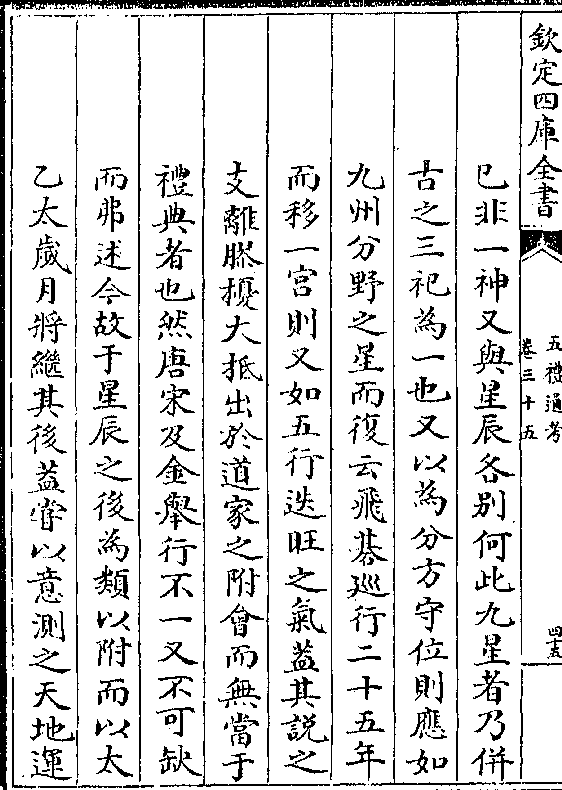 欽定四庫全書
五禮通考
卷三十五
四十五
已非一神又與星辰各别何此九星者乃併
古之三祀為一也又以為分方守位則應如
九州分野之星而復云飛棊廵行二十五年
而移一宫則又如五行迭旺之氣葢其説之
支離膠擾大抵出於道家之附㑹而無當于
禮典者也然唐宋及金舉行不一又不可缺
而弗述今故于星辰之後為類以附而以太
乙太歲月將繼其後葢嘗以意測之天地運